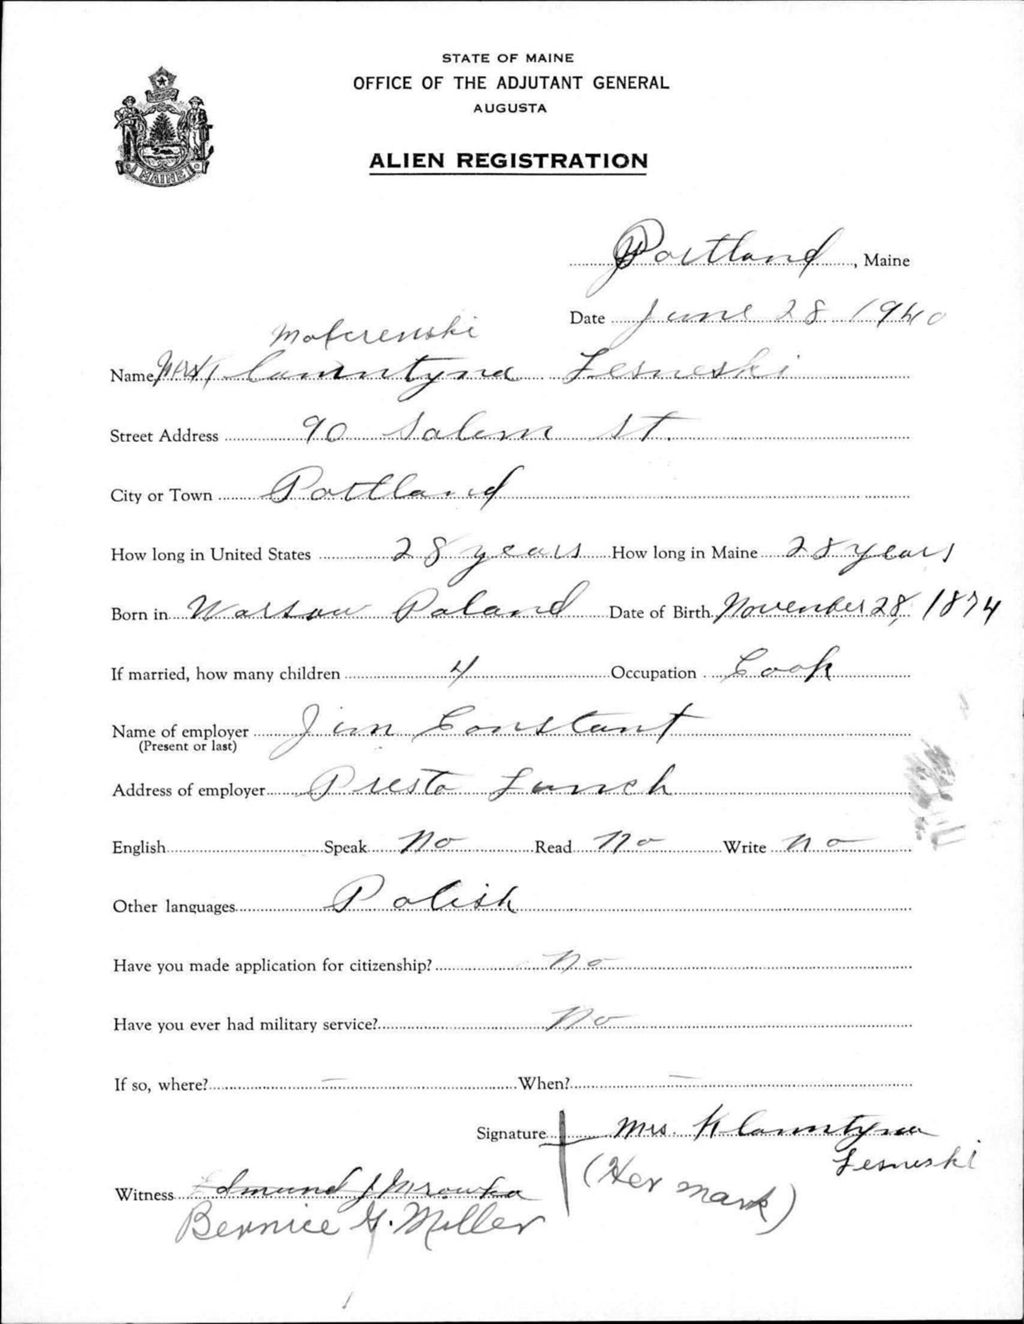 STATE OF MAINE
OFFICE OF THE ADJUTANT GENERAL
AUGUSTA
MAINE
ALIEN REGISTRATION
Portland, Maine
Date June 28 1940
Name Mrs Klamntyna Lesneski
Street Address 90 Salem St.
City or Town Portland
How long in United States 28 years How long in Maine 28 years
Born in Warsaw Poland Date of Birth November 28, 1874
If married, how many children 4 Occupation Cook
Name of employer Jim Constant
(Present or last)
Address of employer Presto Lunch
English Speak No Read No Write no
Other languages Polish
Have you made application for citizenship? no
Have you ever had military service? No
If so, where? — When? —
Signature Mrs. Klamntyna
Lesneski
(Her mark)
Witness Edmund J Mrowka
Bernice G. Miller